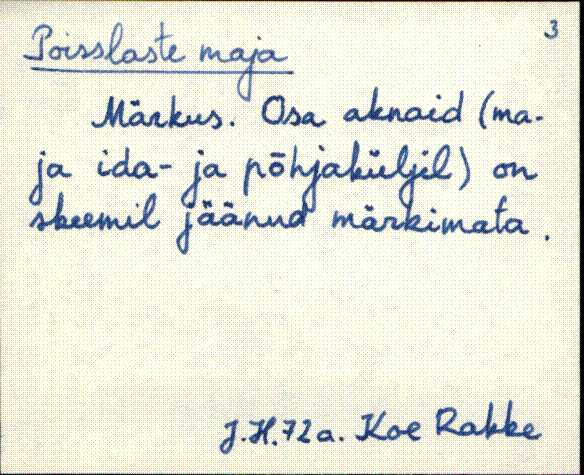 3
Poisslaste maja
Märkus. Osa aknaid (ma-
ja ida- ja põhjaküljel) on
skeemil jäänud märkimata.
J.H.72a. Koe Rakke